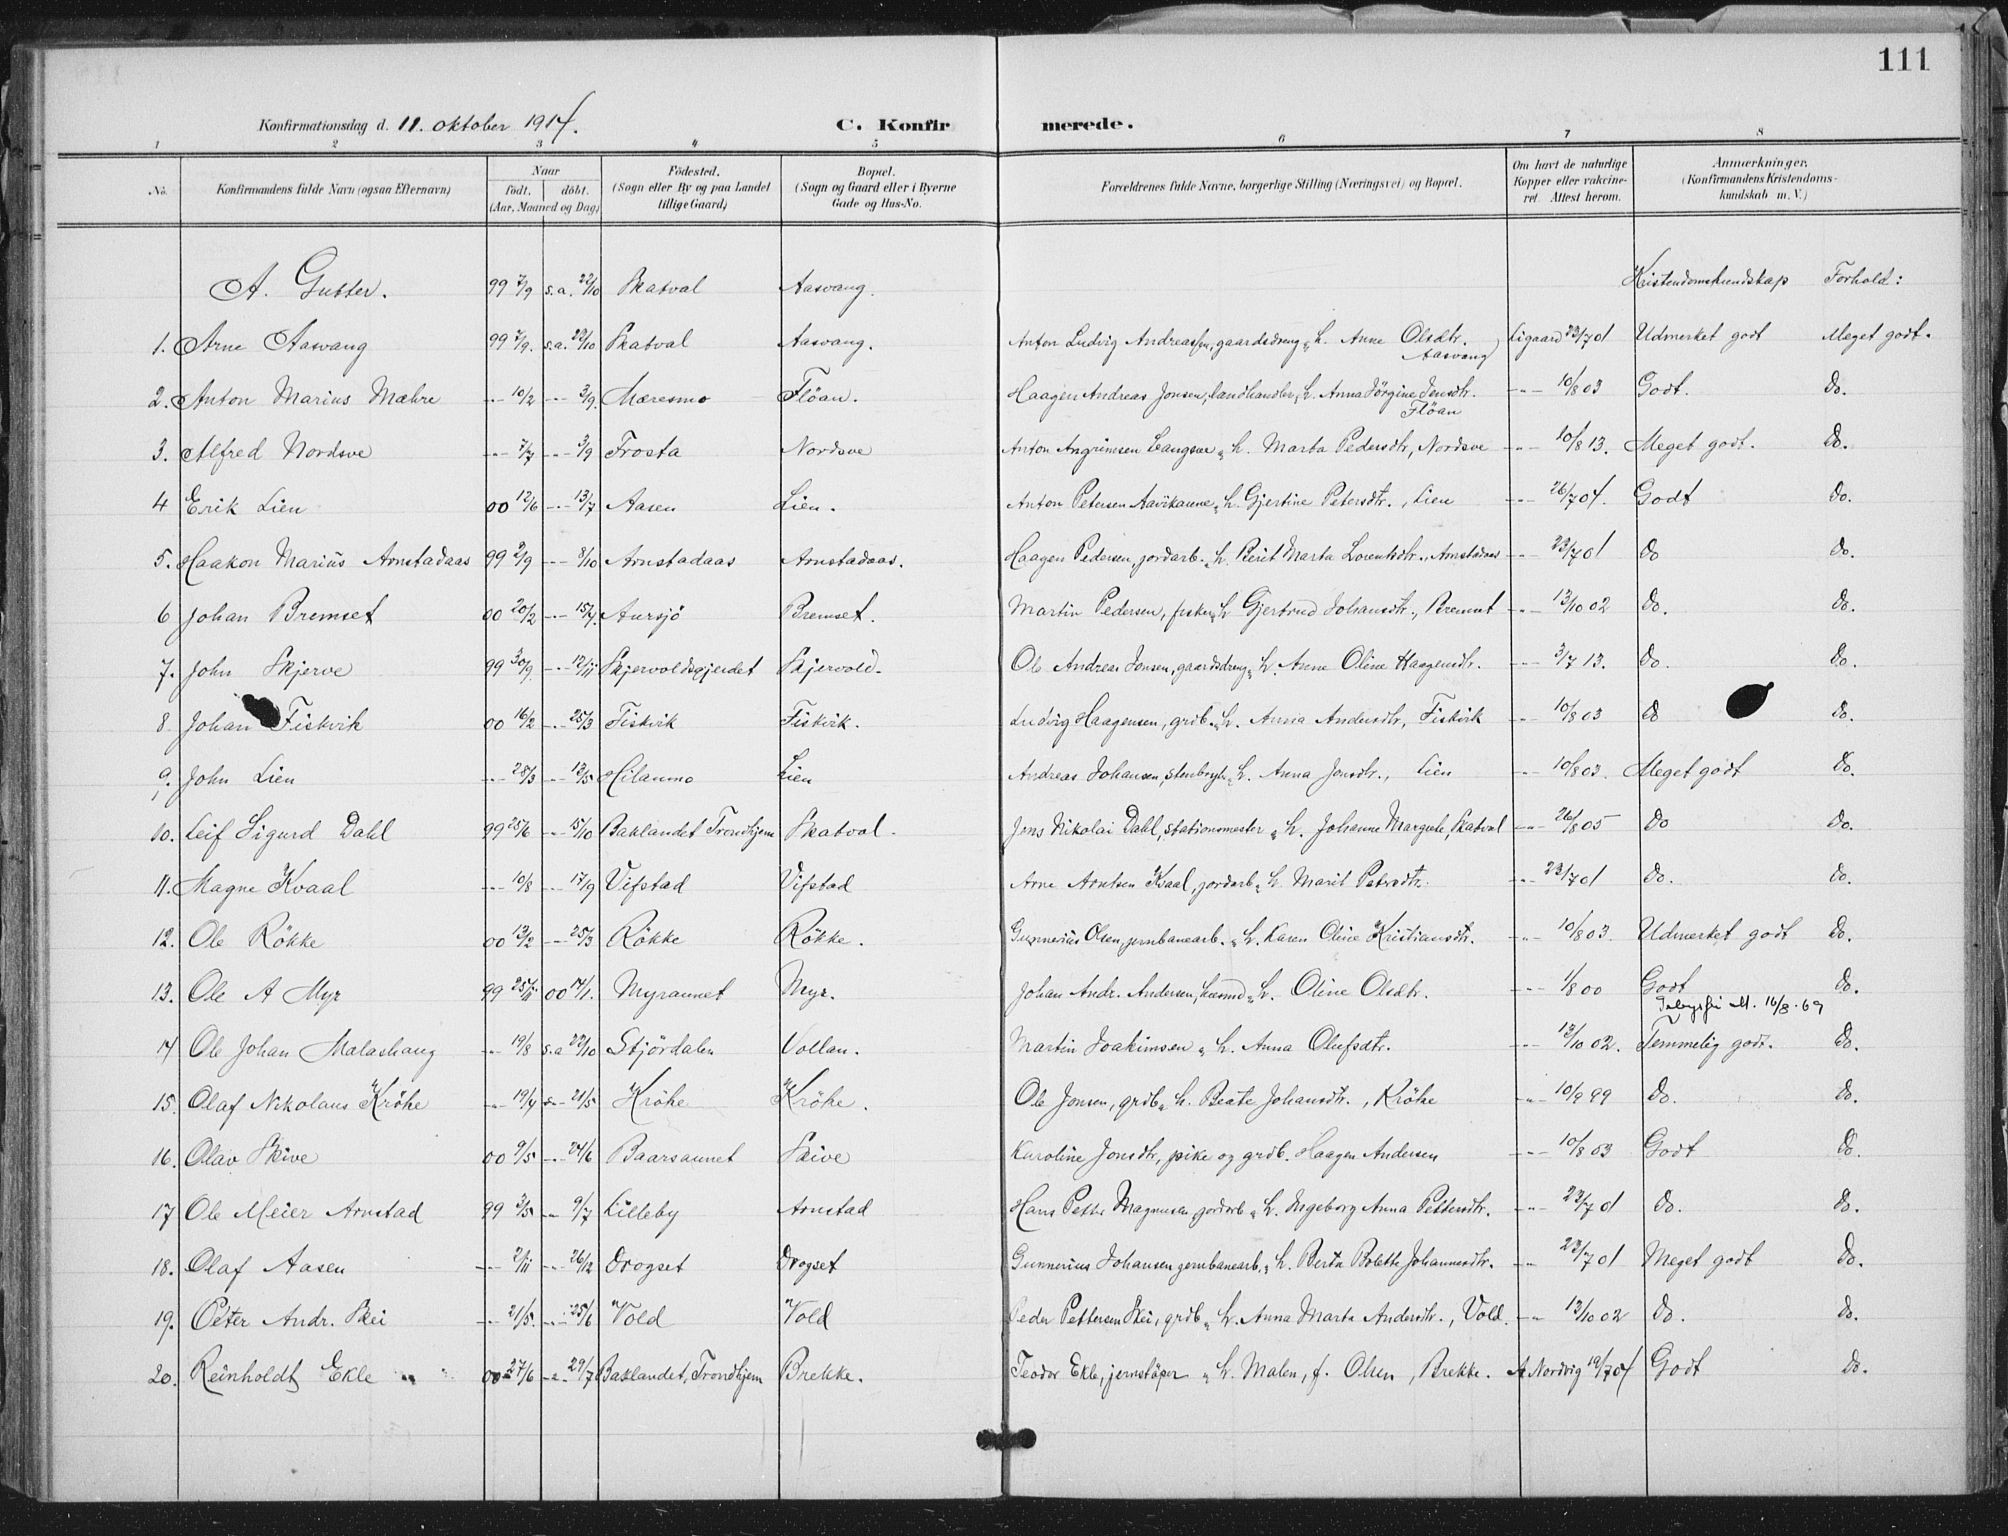 111
Konfirmationsdag d. 11. oktober 1914. C. Konfirmerede.
1 2 3 4 5 6 7 8
No. Konfirmandens fulde Navn (ogsaa Efternavn) Naar født. døbt. (Aar, Maaned og Dag) Fødested. (Sogn eller By og paa Landet tillige Gaard) Bopæl. (Sogn og Gaard eller i Byerne Gade og Hus-No. Forældrenes fulde Navne, borgerlige Stilling (Næringsvei) og Bopæl. Om havt de naturlige Kopper eller vakcineret. Attest herom. Anmærkninger. (Konfirmandens Kristendomskundskab m. V.)
A. Gutter. 99 7/9 s.a. 22/10 Skatval Aasvang. Kristendomskundskap Forhold:
1. Arne Aasvang 99 7/9. s.a. 22/10 Skatval Aasvang. Anton Ludvig Andreassen, gaardsdreng " h. Anne Olsdtr. Aasvang Ligaard 23/7 01 Udmerket godt Meget godt.
2. Anton Marius Mæhre -"- 10/2 -"- 3/9. Mæresmo Flöan. Haagen Andreas Jonsen, landhandler " h. Anna Jörgine Jensdtr. Flöan -"- 10/8 03 Godt. Do.
3. Alfred Nordsve -"- 7/7 -"- 3/9 Frosta Nordsve Anton Angrimsen Langsve " h. Marta Pedersdtr, Nordsve -"- 10/8 13. Meget godt. Do.
4 Erik Lien 00 12/6 -"- 13/7 Aasen Lien. Anton Petersen Aavikaune " h. Gjertine Petersdtr., Lien -"- 26/7 04. Godt Do.
5. Haakon Marius Arnstadaas 99 2/9 -"- 8/10 Arnstadaas Arnstadaas. Haagen Pedersen, jordarb. " h. Berit Marta Lorentsdtr., Arnstadaas -"- 23/7 01 Do Do.
6 Johan Bremset 00 20/2 -"- 15/4. Aursjö Bremset. Martin Pedersen, fisker " h Gjertrud Johansdtr., Bremset -"- 13/10 02 Do. Do.
7. John Skjerve 99 30/9. -"- 12/11 Skjervoldsgjerdet Skjervold. Ole Andreas Jonsen, gaardsdreng " h. Anne Oline Haagensdtr. -"- 3/7 13. Do. Do.
8. Johan Fiskvik 00 16/2 -"- 25/3 Fiskvik Fiskvik. Ludvig Haagensen, grdb. " h. Anna Andersdtr, Fiskvik -"- 10/8 03 Do Do.
9. John Lien -"- 28/3 -"- 13/5 Hilanmo Lien Andreas Johansen, stenbryter " h. Anna Jonsdtr., Lien -"- 10/8 03. Meget godt Do.
10. Leif Sigurd Dahl 99 25/6 -"- 15/10 Baklandet Trondhjem Skatval. Jens Nikolai Dahl, stationsmester " h. Johanne Margrete, Skatval -"- 26/8 05 Do Do.
11. Magne Kvaal -"- 10/8 -"- 17/9 Vifstad Vifstad Arne Arntsen Kvaal, jordarb " h. Marit Petersdtr. -"- 23/7 01 Do. Do.
12. Ole Rökke 00 13/2 -"- 25/3 Rökke Rökke. Gunnerius Olsen, jernbanearb. " h. Karen Oline Kristiansdtr. -"- 10/8 03. Udmerket godt Do.
13. Ole A Myr 99 25/11 00 14/1. Myraunet Myr. Johan Andr. Andersen, husmd " h. Oline Olsdtr. -"- 1/8 00 Godt Do.
M. 16/8.69
14 Ole Johan Malashaug -"- 19/8 s.a 22/10 Stjördalen Vollan. Martin Joakimsen " h. Anna Olufsdtr. -"- 13/10 02. Temmelig godt. Do.
15. Olaf Nikolaus Kröke -"- 19/4 s"- 21/5 Kröke Kröke. Ole Jonsen, grdb " h. Beate Johansdtr., Kröke -"- 10/9 99 Do. Do.
16. Olav Skive 00 9/5 -"- 24/6 Baarsaunet Skive Karoline Jonsdtr, pike og grdb. Haagen Andersen -"- 10/8 03 Godt Do.
17 Ole Meier Arnstad 99 3/5 -"- 9/7 Lilleby Arnstad Hans Petter Magnusen jordarb " h. Ingeborg Anna Pettersdtr. -"- 23/7 01 Do. Do.
18. Olaf Aasen -"- 2/11 -"- 26/12 Drogset Drogset Gunnerius Johansen jernbanearb, " h. Berta Bolette Johannesdtr. -"- 23/7 01 Meget godt Do.
19. Peter Andr. Skei -"- 21/5. -"- 25/6 Vold Vold Peder Pettersen Skei, grdb " h. Anna Marta Andersdtr., Vold. -"- 13/10 02 Do. Do.
20. Reinholdt Ekle 00 27/6 -"- 29/7 Baklandet, Trondhjem Brekke. Teodor Ekle, jernstöper " h. Malen, f. Olsen, Brekke. A. Nordvig 19/7 04 Godt Do.